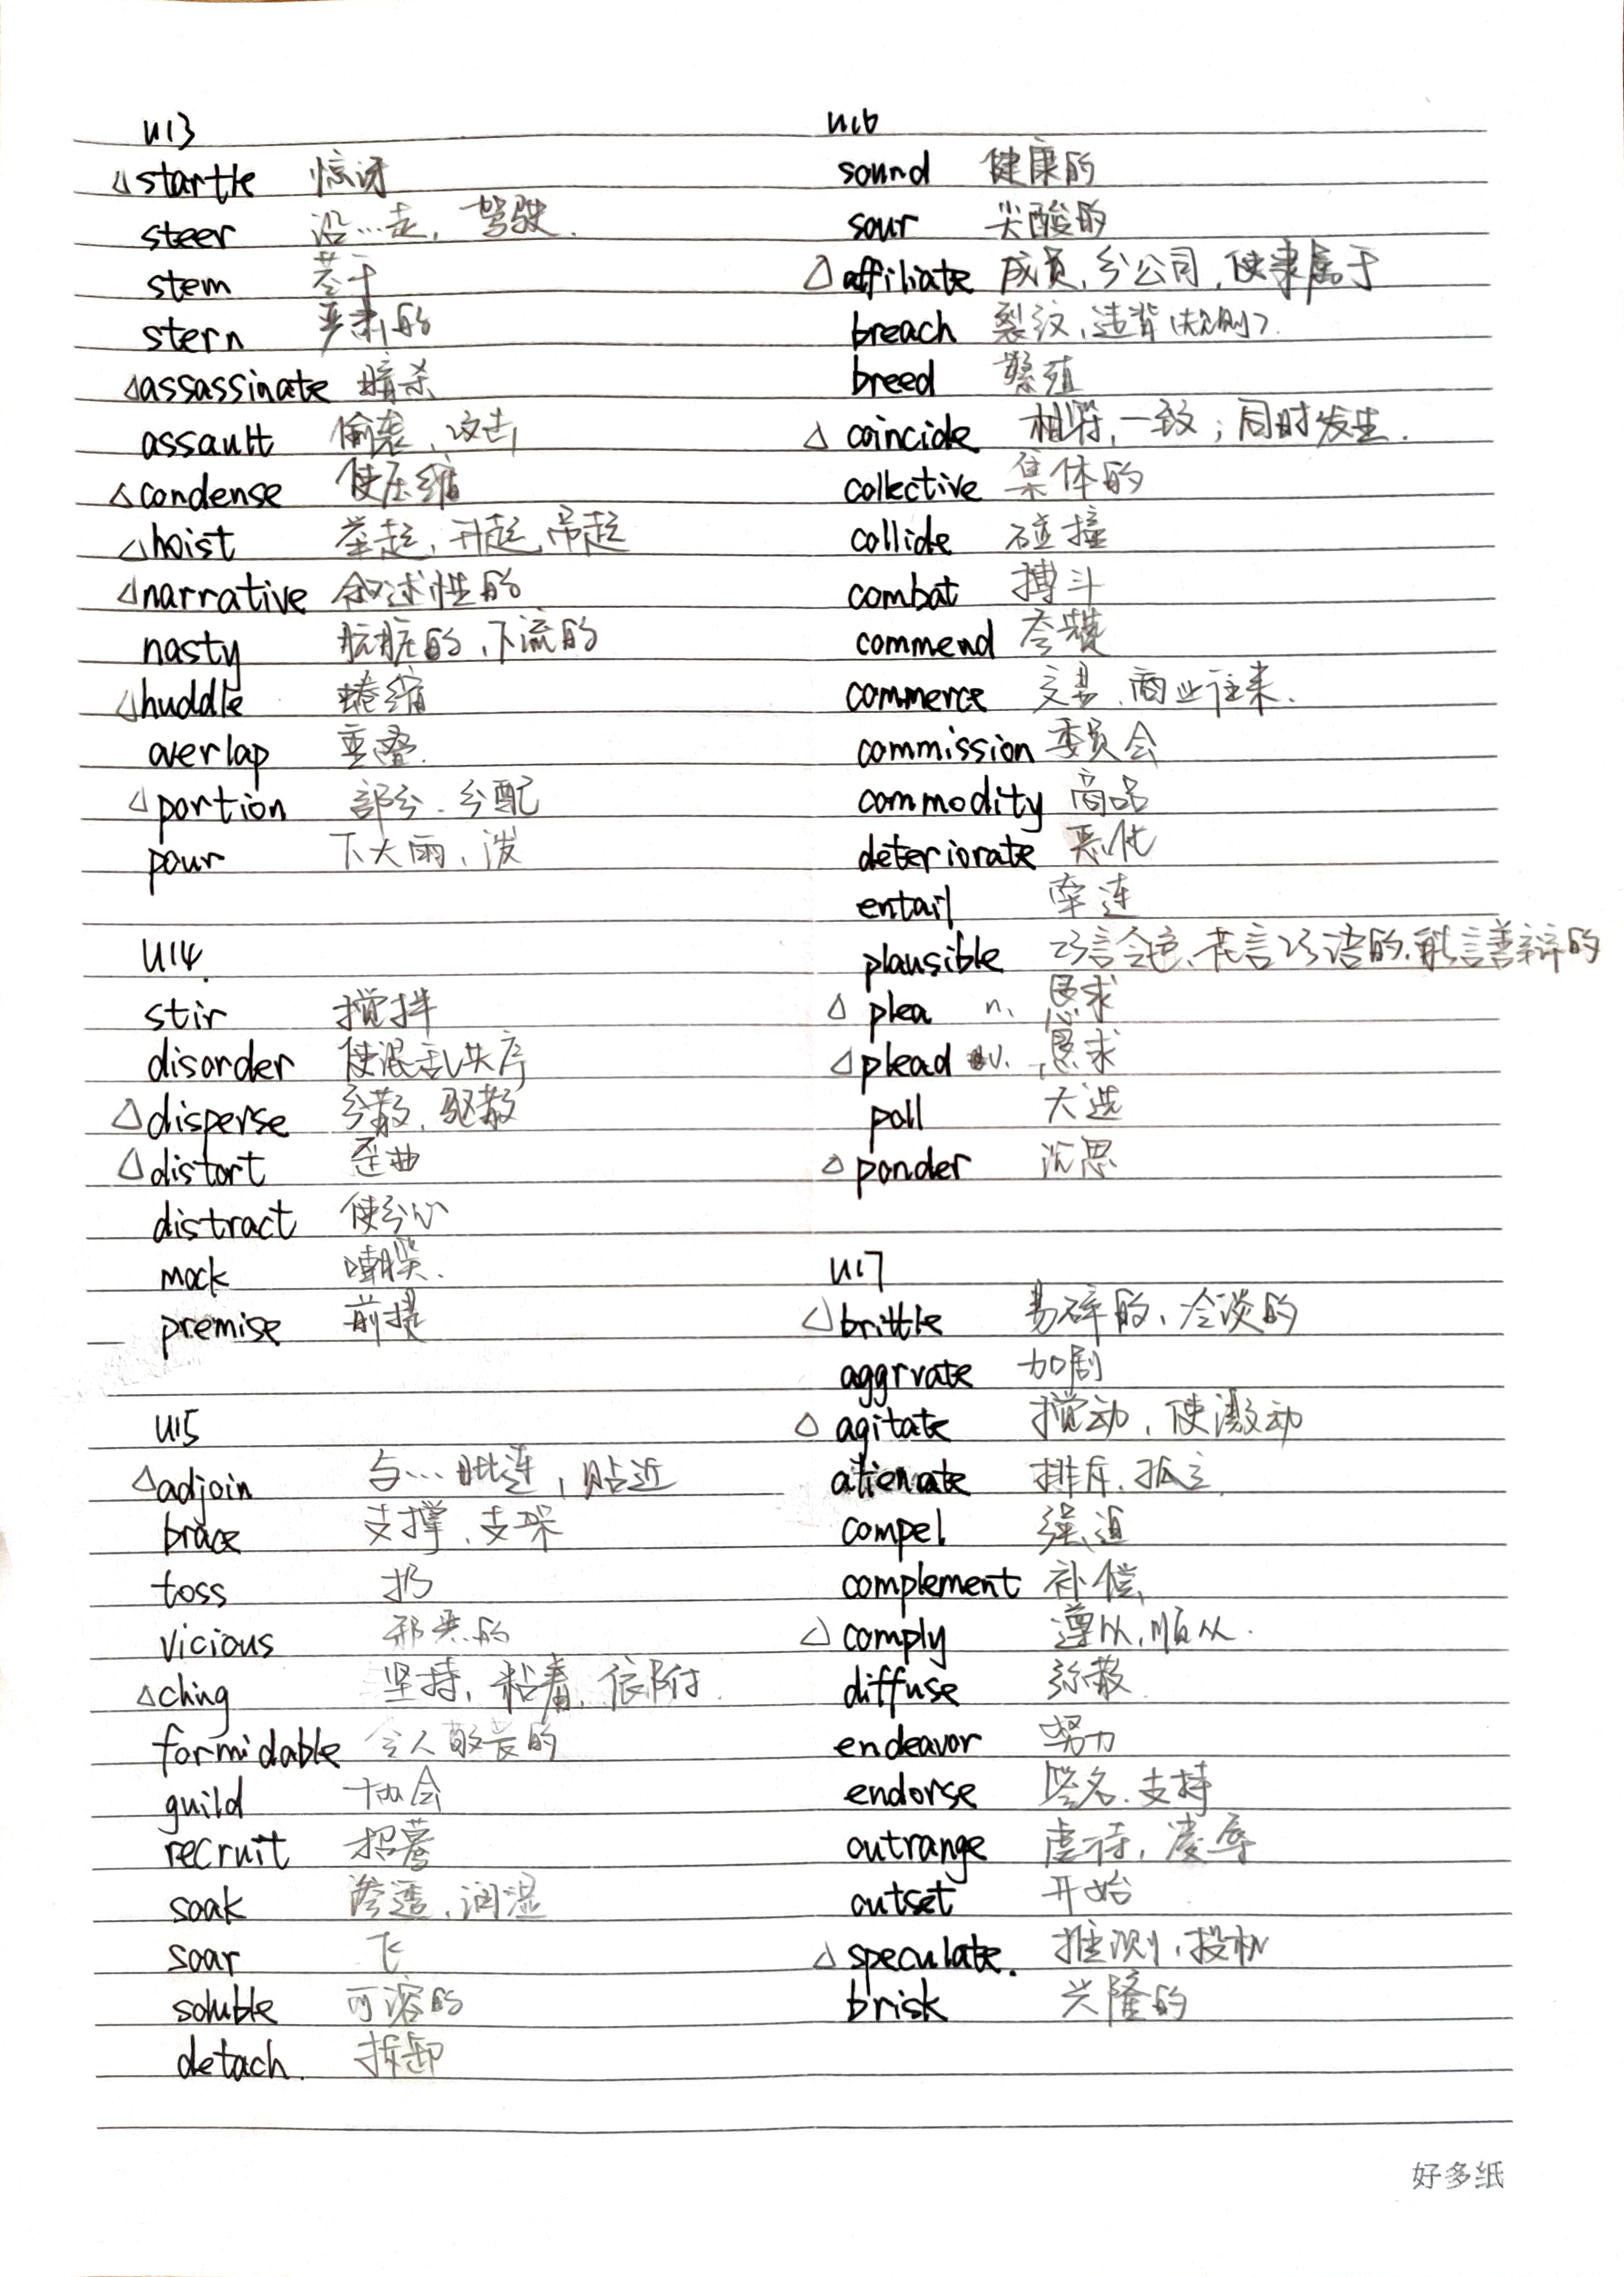 U13
△startle 惊讶
steer 沿…走,驾驶.
stem 茎干
stern 严肃的
△assassinate 暗杀
assault 偷袭、攻击
△condense 使压缩
△hoist 举起,升起,吊起
△narrative 叙述性的
nasty 肮脏的,下流的
△huddle 蜷缩
overlap 重叠.
△portion 部分.分配
pour 下大雨、泼
U14.
stir 搅拌
disorder 使混乱失序
△disperse 分散,驱散
△distort 歪曲
distract 使分心
mock 嘲笑.
premise 前提
U15
△adjoin 与…毗连,贴近
brace 支撑、支架
toss 扔
vicious 邪恶的
△ching 坚持,粘着,依附.
formidable 令人敬畏的
guild 协会
recruit 招募
soak 渗透、润湿
soar 飞
soluble 可溶的
detach. 拆卸
U16
sound 健康的
sour 尖酸的
△affiliate 成员,分公司,使隶属于
breach 裂纹,违背(规则).
breed 繁殖
△coincide 相符,一致;同时发生.
collective 集体的
collide 碰撞
combat 搏斗
commend 夸赞
commerce 交易、商业往来.
commission 委员会
commodity 商品
deteriorate 恶化
entail 牵连
plausible 巧言令色、花言巧语的,能言善辩的
△plea n. 恳求
△plead v. 恳求
poll 大选
△ponder 沉思
U17
△brittle 易碎的、冷淡的
aggrvate 加剧
△agitate 搅动,使激动
alienate 排斥.孤立
compel 强迫
complement 补偿
△comply 遵从,顺从.
diffuse 弥散
endeavor 努力
endorse 签名.支持
outrange 虐待,凌辱
outset 开始
△speculate. 推测,投机
brisk 兴隆的
好多纸